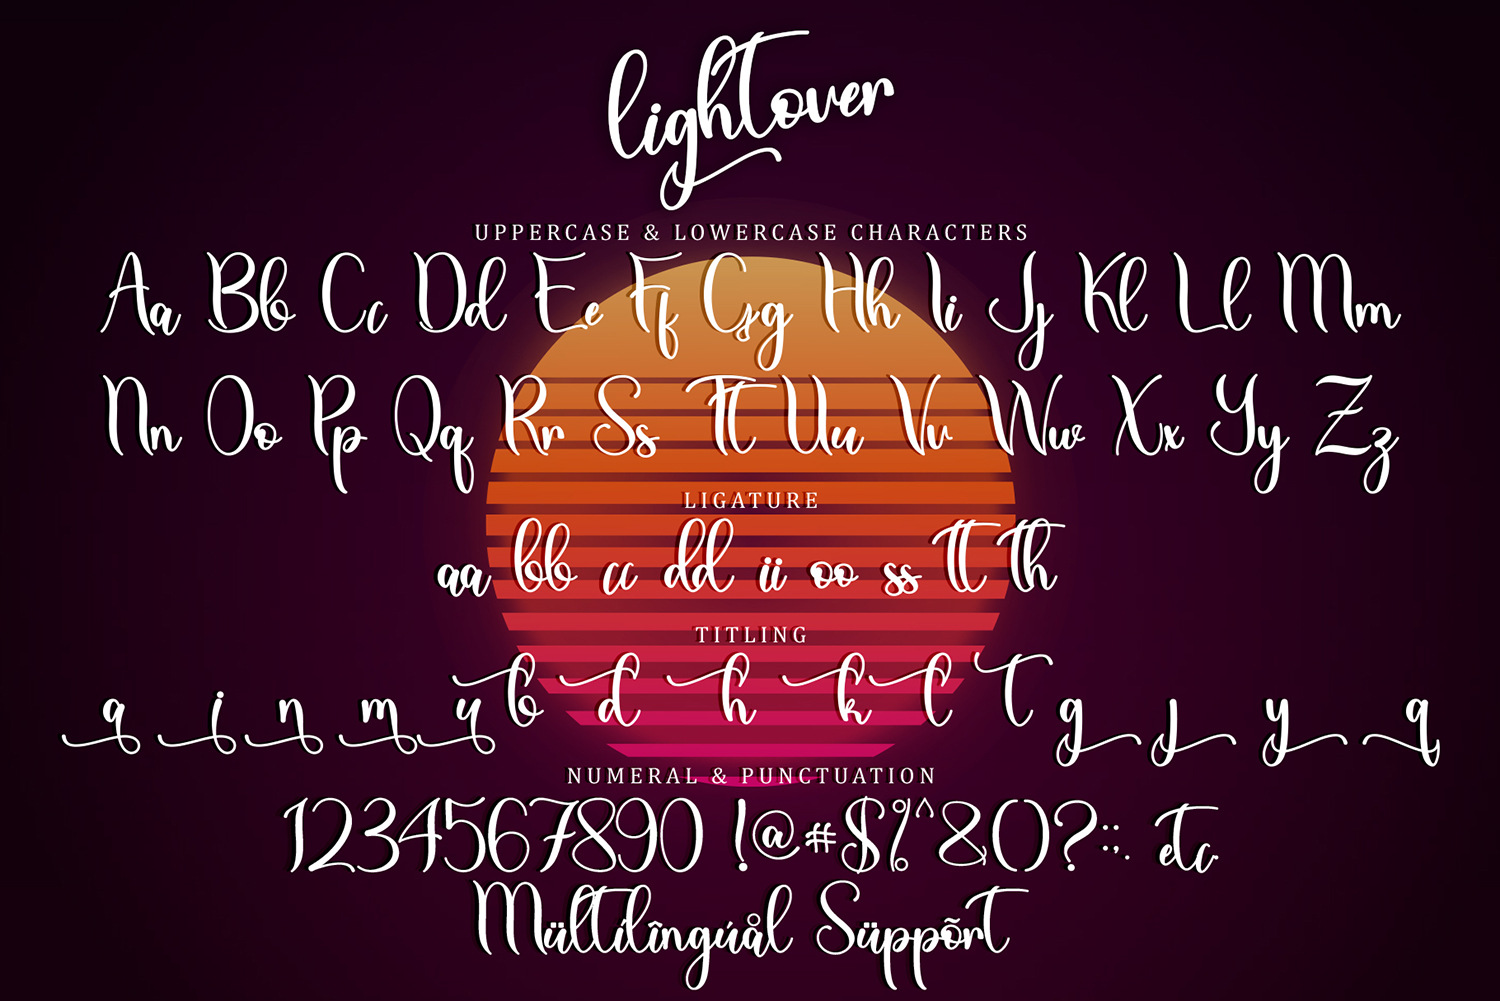 lightover
UPPERCASE & LOWERCASE CHARACTERS
Aa Bb Cc Dd Ee Ff Gg Hh Ii Jj Kk Ll Mm
Nn Oo Pp Qq Rr Ss Tt Uu Vv Ww Xx Yy Zz
LIGATURE
aa bb cc dd ii oo ss tt th
TITLING
a i n m u b d h k l t g j y q
NUMERAL & PUNCTUATION
1234567890 !@#$%^&()?:;,. etc.
Mültílîngúål Süppõrt